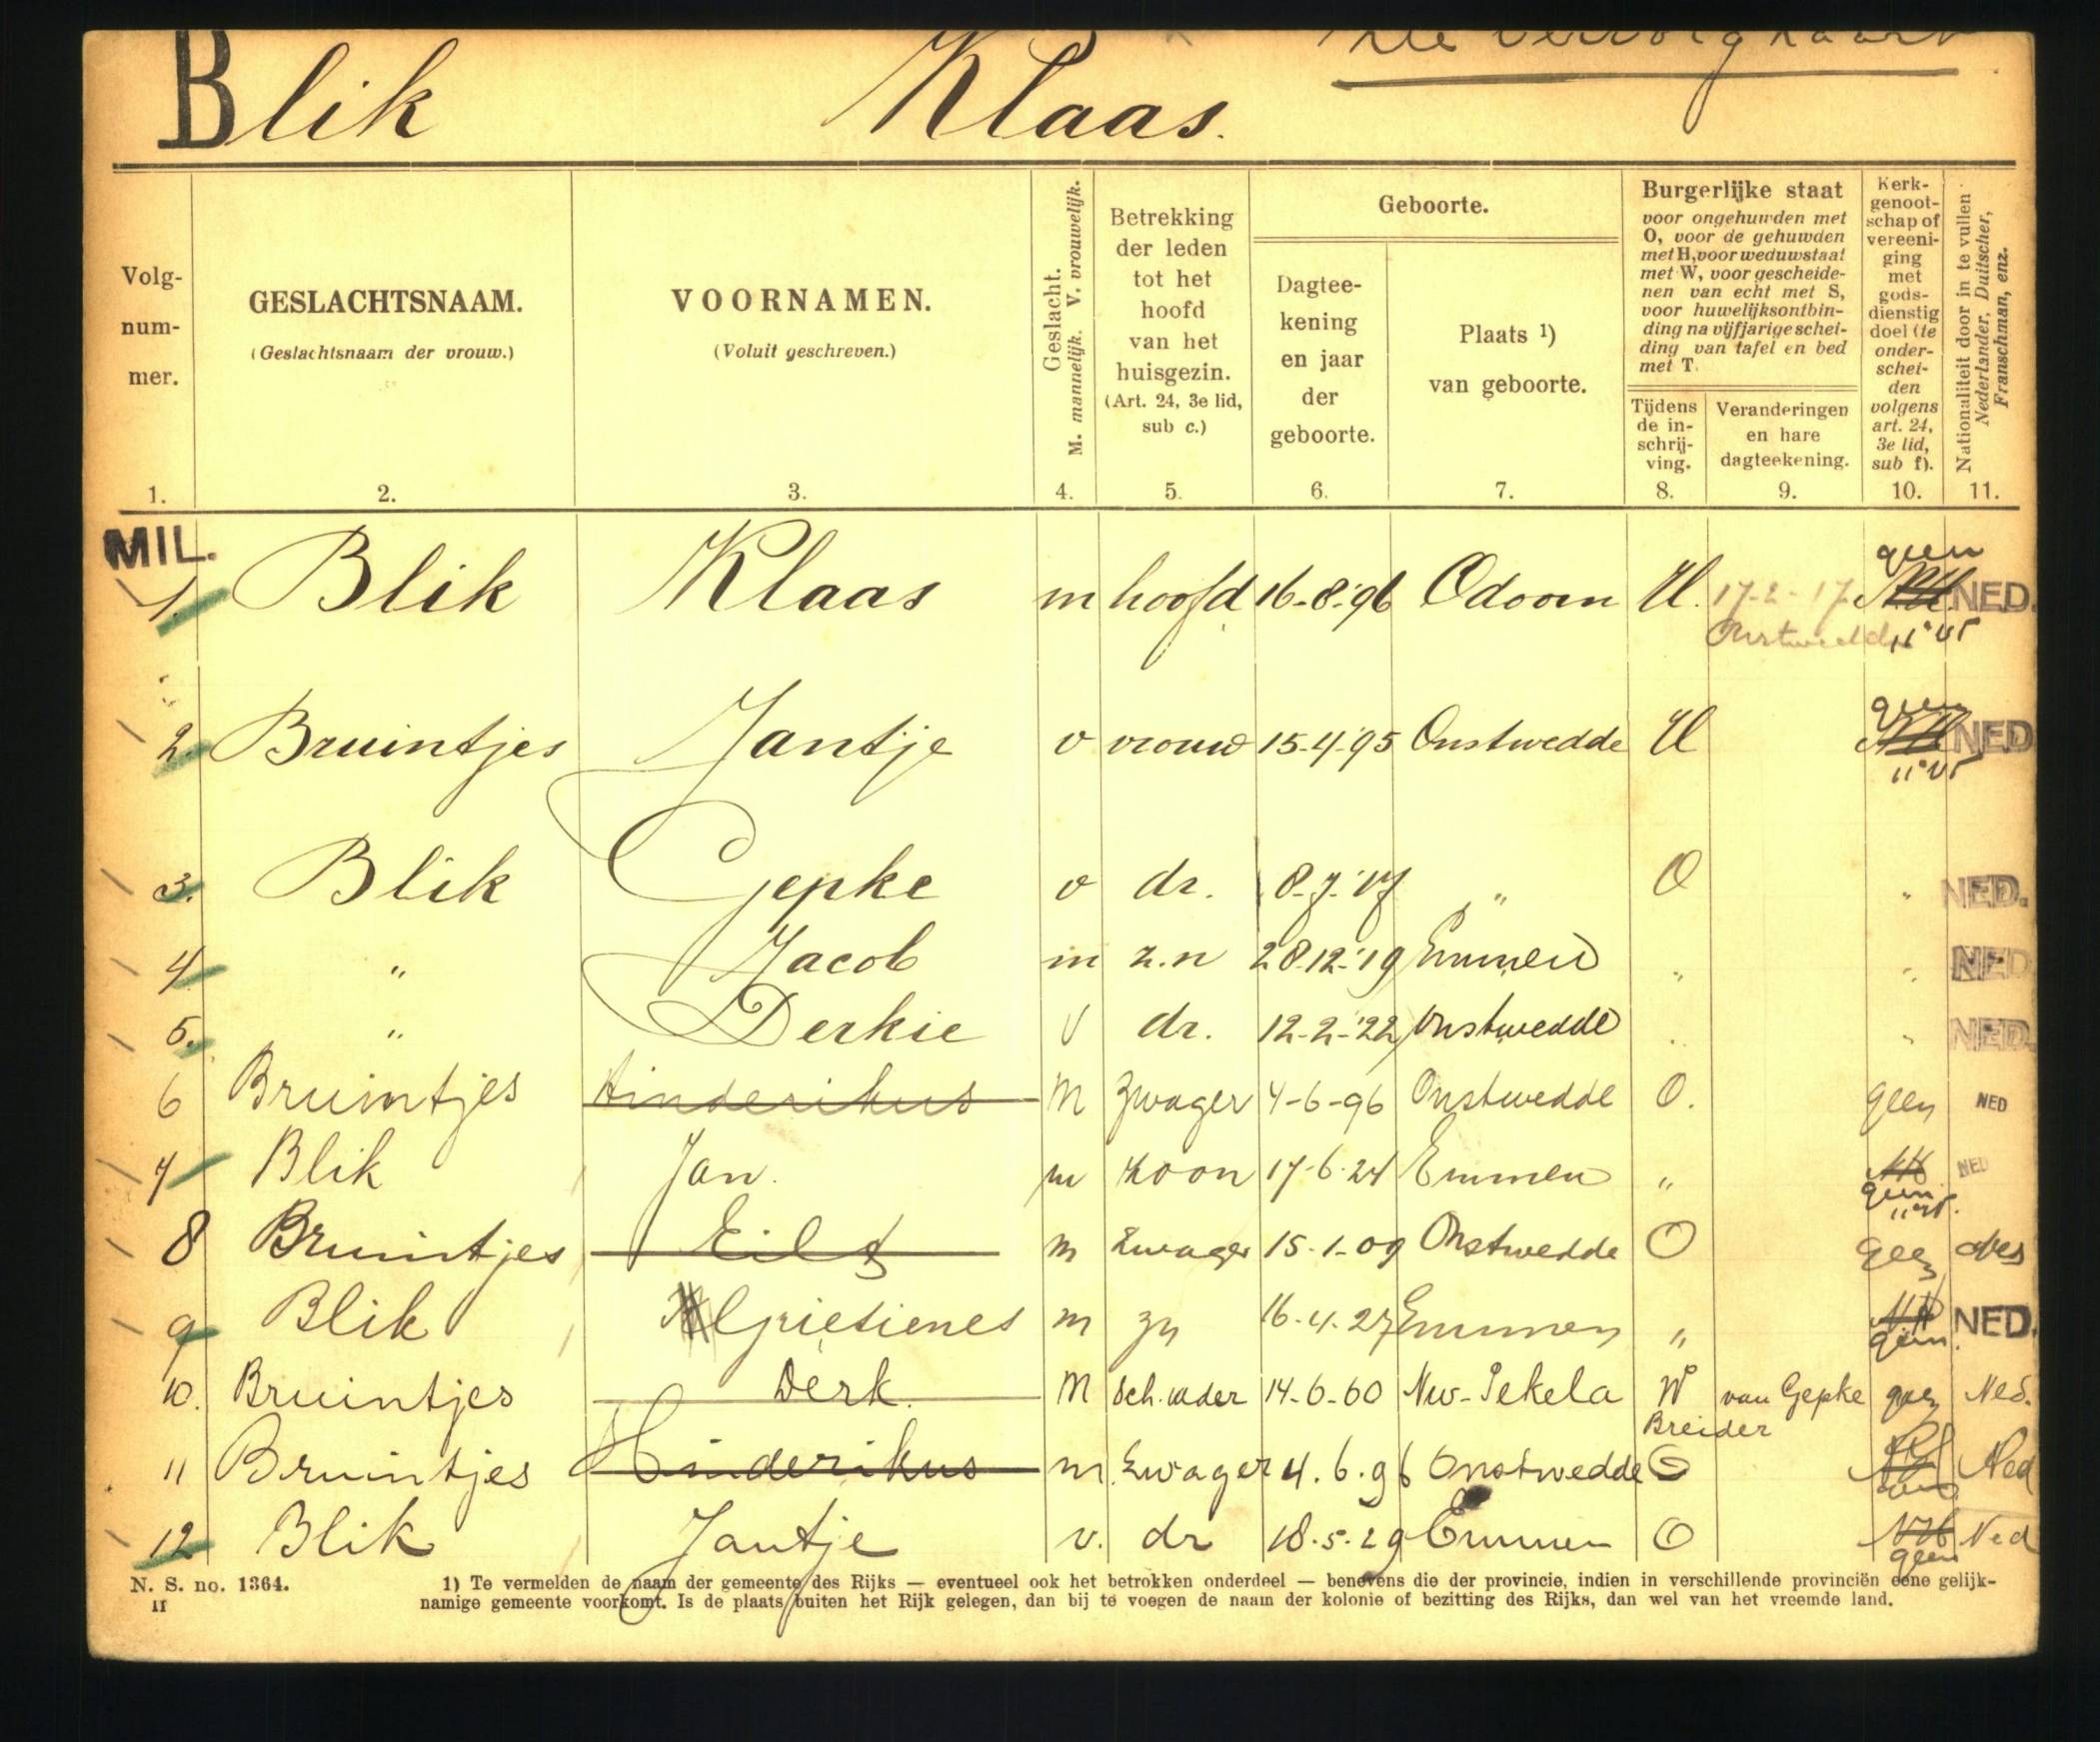 Zie vervolgkaart
Blik Klaas.
Volg-
num-
mer.
GESLACHTSNAAM.
(Geslachtsnaam der vrouw.)
VOORNAMEN.
(Voluit geschreven.)
Geslacht.
M. mannelijk. V. vrouwelijk.
Betrekking
der leden
tot het
hoofd
van het
huisgezin.
(Art. 24, 3e lid,
sub c.)
Geboorte.
Dagtee-
kening
en jaar
der
geboorte.
Plaats 1)
van geboorte.
Burgerlijke staat
voor ongehuwden met
O, voor de gehuwden
met H, voor weduwstaat
met W, voor gescheide-
nen van echt met S,
voor huwelijksontbin-
ding na vijfjarige schei-
ding van tafel en bed
met T.
Tijdens
de in-
schrij-
ving.
Veranderingen
en hare
dagteekening.
Kerk-
genoot-
schap of
vereeni-
ging
met
gods-
dienstig
doel (te
onder-
schei-
den
volgens
art. 24,
3e lid,
sub f).
Nationaliteit door in te vullen
Nederlander, Duitscher,
Franschman, enz.
1. 2. 3. 4. 5. 6. 7. 8. 9. 10. 11.
MIL.
geen
1. Blik Klaas m hoofd 16-8-'96 Odoorn H. 17-2-17 NH. NED.
Onstwedde
geen
2. Bruintjes Jantje v vrouw 15-4-'95 Onstwedde H NH NED
3. Blik Gepke v dr. 8-7-'17 " O " NED.
4 " Jacob m z.n 28-12-'19 Emmen " " NED
5. " Derkie V dr. 12-2-'22 Onstwedde " " NED.
6 Bruintjes Hinderikus M Zwager 4-6-96 Onstwedde O. geen NED
7 Blik Jan. m zoon 17-6-24 Emmen " NH NED
geen
8 Bruintjes Eilt m zwager 15-1-09 Onstwedde O geen Ned
9 Blik Grietienes m zn 16-4-27 Emmen " NH NED.
geen
10. Bruintjes Derk. M Sch.vader 14-6-60 Nw-Pekela W van Gepke geen Ned.
Breider
11 Bruintjes Hinderikus m. zwager 4.6.96 Onstwedde O Ned
12 Blik Jantje v. dr 18.5.29 Emmen O NH Ned
geen
N. S. no. 1364.
II
1) Te vermelden de naam der gemeente des Rijks — eventueel ook het betrokken onderdeel — benevens die der provincie, indien in verschillende provinciën eene gelijk-
namige gemeente voorkomt. Is de plaats buiten het Rijk gelegen, dan bij te voegen de naam der kolonie of bezitting des Rijks, dan wel van het vreemde land.